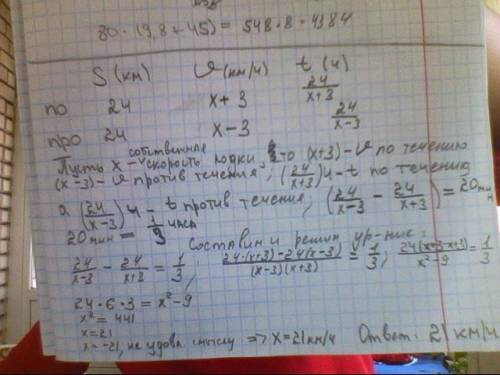 80 · (9,8 + 45) = 548 · 8 = 4384
S (км) V (км/ч) t (ч)
по 24 x+3 24/(x+3)
про 24 x-3 24/(x-3)
Пусть x - собственная скорость лодки, то (x+3) - V по течению
(x-3) - V против течения, (24/(x+3)) ч - t по течению,
а (24/(x-3)) ч - t против течения, (24/(x-3) - 24/(x+3)) = 20 мин
20 мин = 1/3 часа
Составим и решим ур-ние:
24/(x-3) - 24/(x+3) = 1/3, (24·(x+3)-24(x-3))/((x-3)(x+3)) = 1/3, 24(x+3-x+3)/(x²-9) = 1/3
24·6·3 = x²-9
x² = 441
x=21
x= -21, не удовл. смыслу => x=21 км/ч Ответ: 21 км/ч